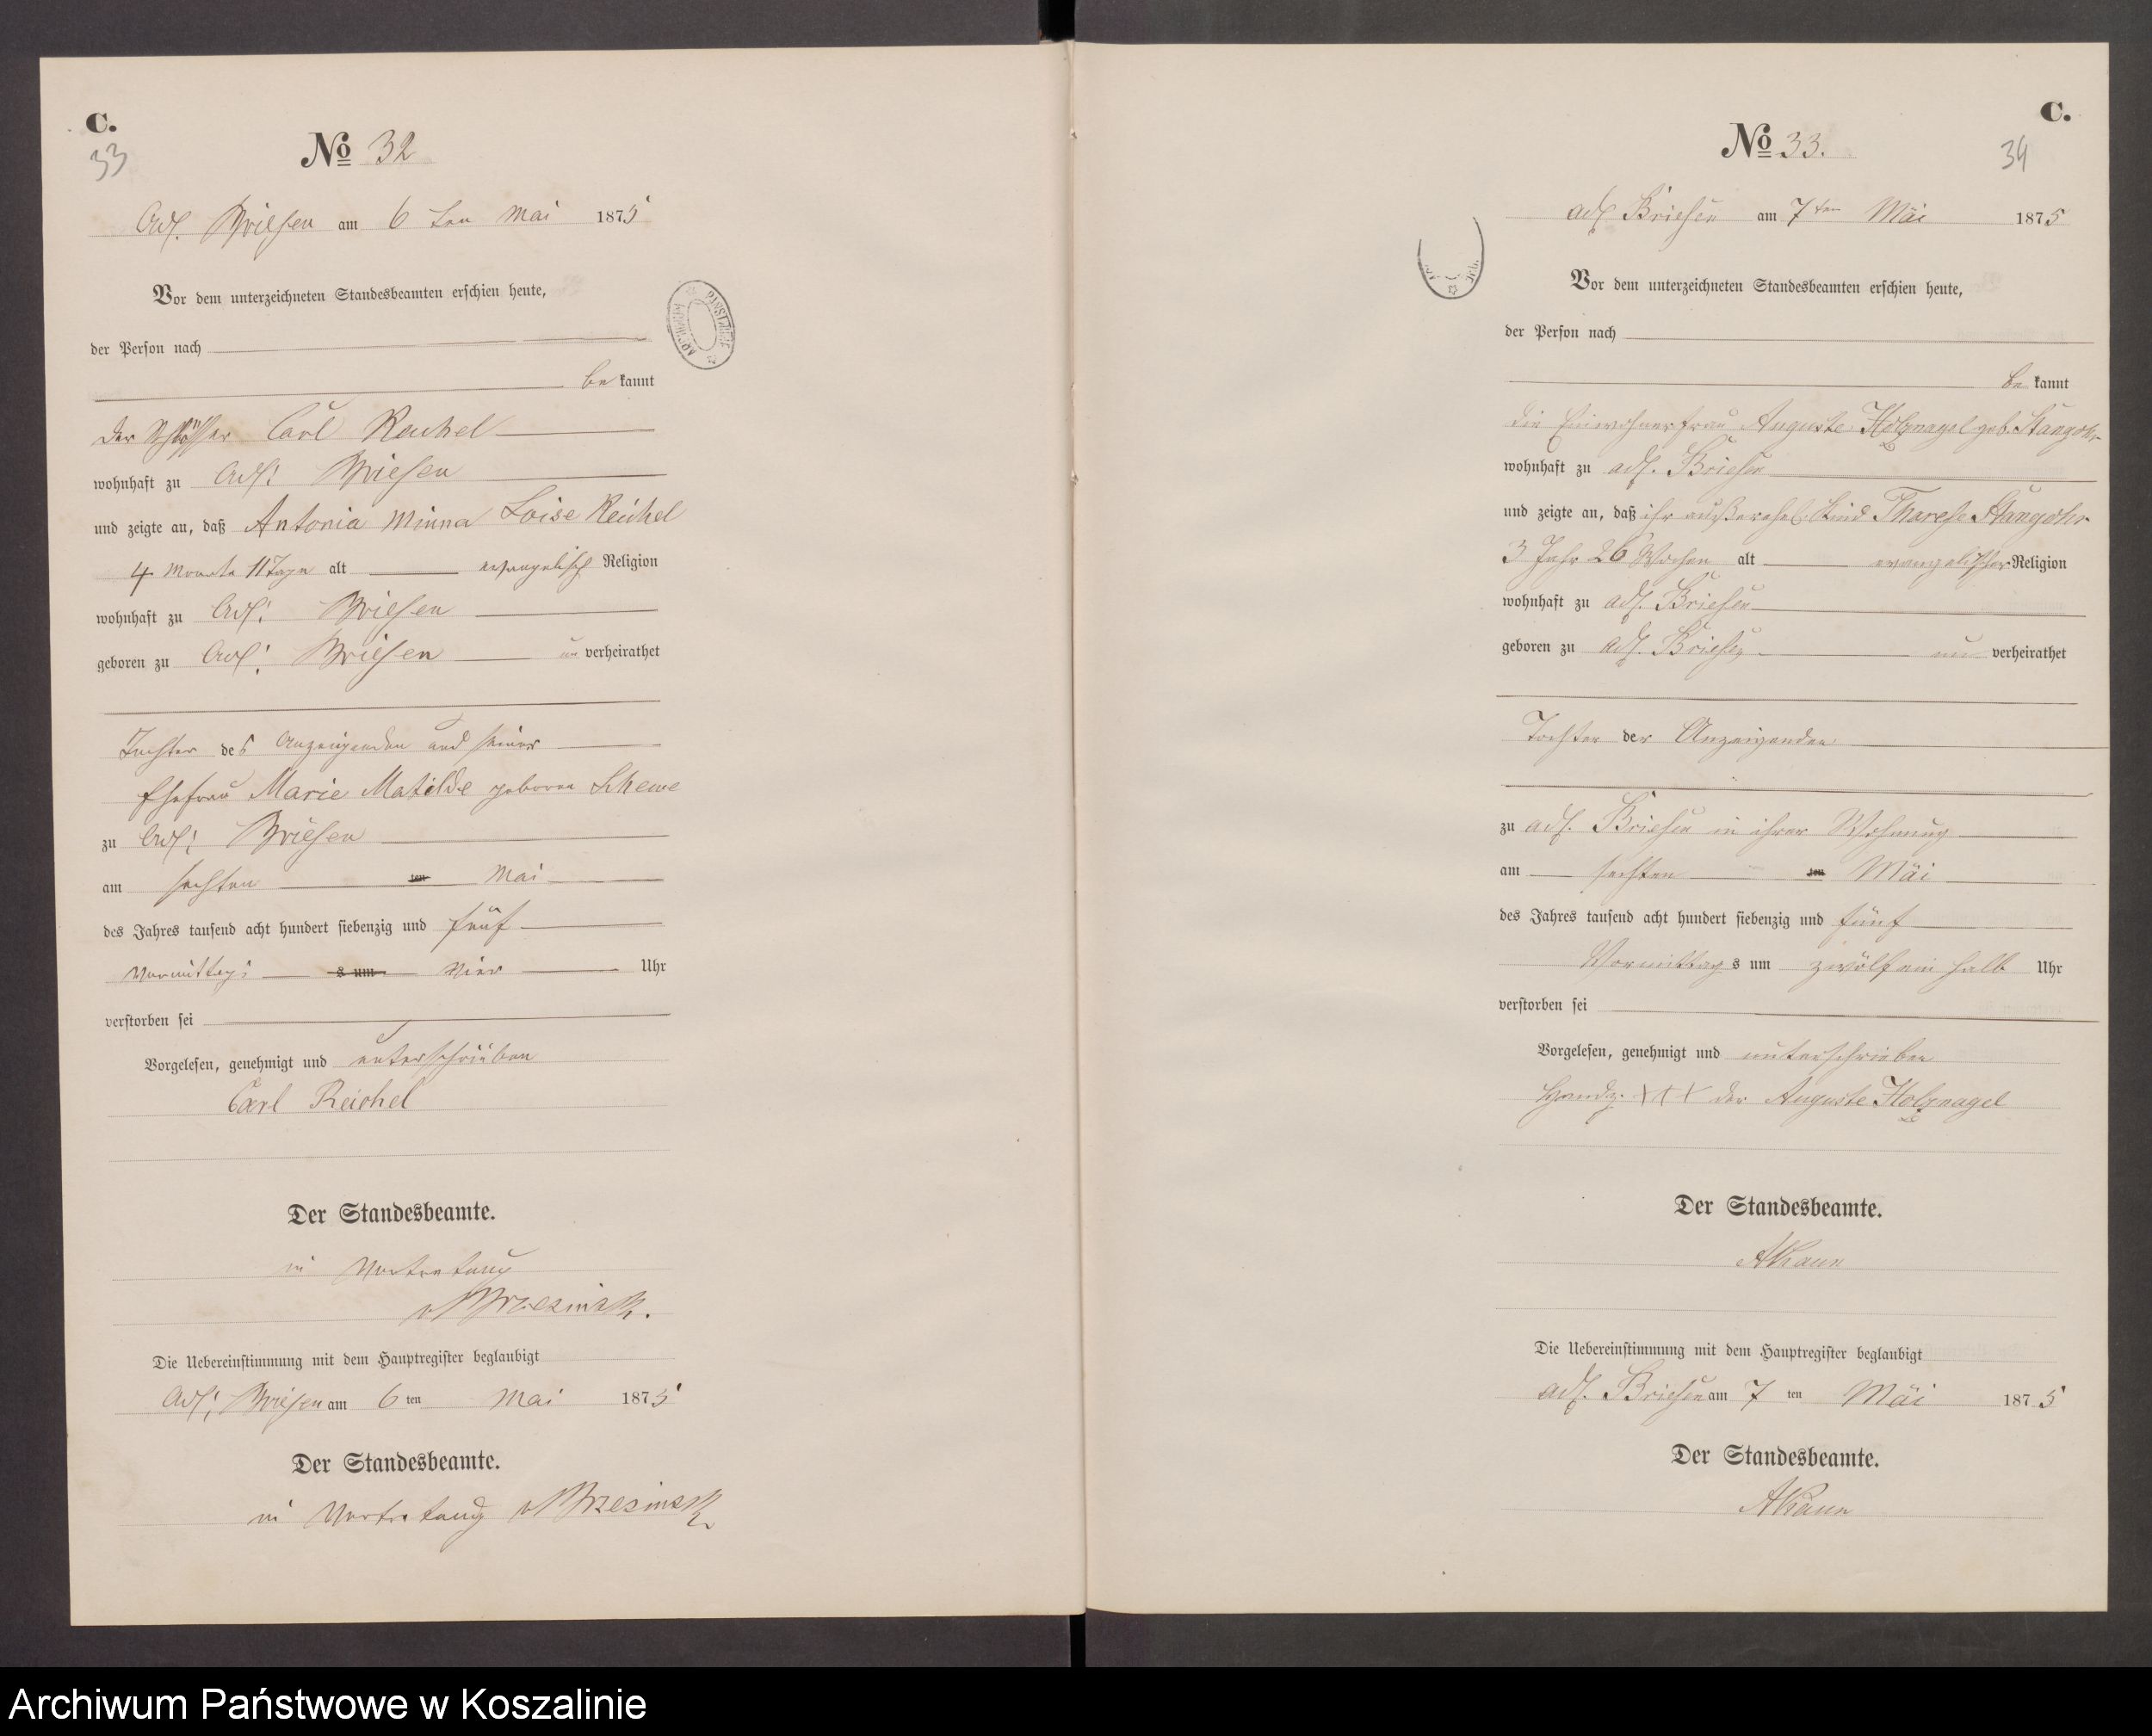 C.
33
No 32
Adl. Briesen am 6 ten Mai 1875
Vor dem unterzeichneten Standesbeamten erschien heute,
der Person nach
be kannt
der Schlosser Carl Reichel
wohnhaft zu Adl. Briesen
und zeigte an, daß Antonia Minna Loise Reichel
4 Monate 11 Tage alt evangelisch Religion
wohnhaft zu Adl. Briesen
geboren zu Adl. Briesen un verheirathet
Tochter des Anzeigenden und seiner
Ehefrau Marie Matilde geboren Schewe
zu Adl. Briesen
am sechsten ten Mai
des Jahres tausend acht hundert siebenzig und fünf
Vormittags s um Vier Uhr
verstorben sei
Vorgelesen, genehmigt und unterschrieben
Carl Reichel
Der Standesbeamte.
in Vertretung
Die Uebereinstimmung mit dem Hauptregister beglaubigt
Adl. Briesen am 6 ten Mai 1875
Der Standesbeamte.
in Vertretung
C.
34
No 33.
adl. Briesen am 7 ten Mai 1875
Vor dem unterzeichneten Standesbeamten erschien heute,
der Person nach
be kannt
die Einwohnerfrau Auguste Holznagel geb. Stangohr
wohnhaft zu adl. Briesen
und zeigte an, daß ihr außerehel. Kind Therese Stangohr
3 Jahr 26 Wochen alt evangelischer Religion
wohnhaft zu adl. Briesen
geboren zu adl. Briesen un verheirathet
Tochter der Anzeigenden
zu adl. Briesen in ihrer Wohnung
am sechsten ten Mai
des Jahres tausend acht hundert siebenzig und fünf
Vormittag s um zwölf ein halb Uhr
verstorben sei
Vorgelesen, genehmigt und unterschrieben
Handz. XXX der Auguste Holznagel
Der Standesbeamte.
Die Uebereinstimmung mit dem Hauptregister beglaubigt
adl. Briesen am 7 ten Mai 1875
Der Standesbeamte.
Archiwum Państwowe w Koszalinie